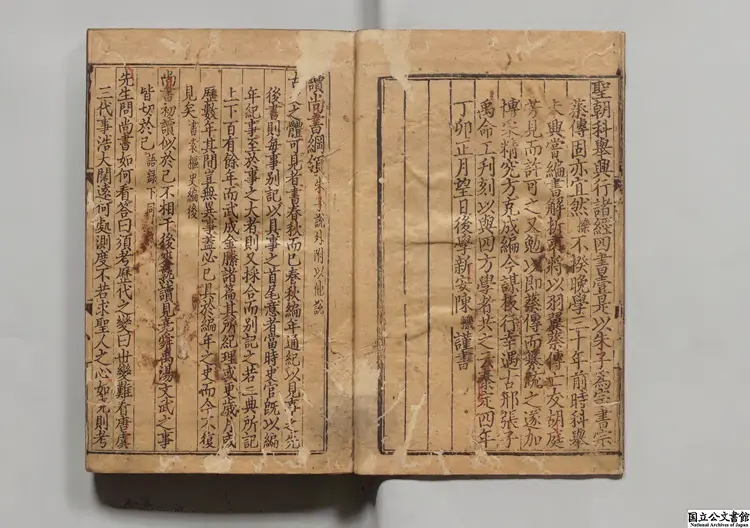 聖朝科舉興行諸經四書壹是以朱子為宗書宗
蔡傳固亦宜然櫟不揆晚學三十年前時科舉
未興嘗編書解折衷將以羽翼蔡傳亡友胡庭
芳見而許可之又勉以即蔡傳而纂疏之遂加
博采精究方克成編今謀板行幸遇古邵張子
禹命工刊刻以與四方學者共之云泰定四年
丁卯正月望日後學新安陳櫟謹書
讀尚書綱領 朱子說外附以他說
古史之體可見者書春秋而已春秋編年通紀以見事之先
後書則每事別記以具事之首尾意者當時史官既以編
年紀事至於事之大者則又採合而別記之若二典所記
上下百有餘年而武成金縢諸篇其所紀理或更歲月或
歷數年其間豈無異事蓋必已具於編年之史而今不復
見矣 書袁樞史編後
尚書初讀似於己不相干後來熟讀見堯舜禹湯文武之事
皆切於己 語錄下同
先生問尚書如何看答曰須考歷代之變曰世變難看唐虞
三代事浩大闊遠何處測度不若求聖人之心如堯則考
国立公文書館
National Archives of Japan